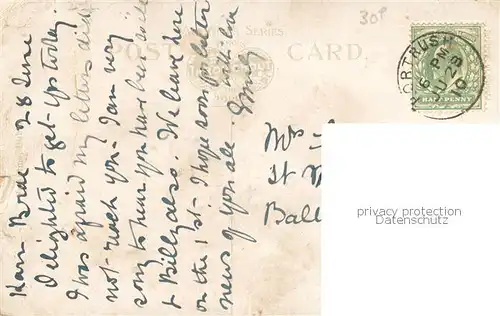 30P
SERIES
POST CARD.
PORTRUSH
6 PM
JU 28
10
HALFPENNY
Karn Brae 28 June
Delighted to get yrs today.
I was afraid my letters did
not reach you. I am very
sorry to hear you have been
& Billy also. We leave here
on the 1st. I hope soon for later
news of you all with love
Emily
Mrs
St
Ball
privacy protection
Datenschutz